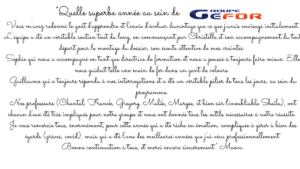 "Quelle superbe année au sein de GROUPE GEFOR
Vous m'avez redonné le goût d'apprendre et l'envie d'évoluer davantage que ce que j'avais envisagé initialement.
L'équipe a été un véritable soutien tout du long, en commençant par Christelle et son accompagnement du tout
départ pour le montage du dossier, son écoute attentive de mes craintes.
Sophie qui nous a accompagné en tant que directrice de formation et nous a poussé à toujours faire mieux. Elle
nous guidait telle une main de fer dans un gant de velours.
Guillaume qui a toujours répondu à nos interrogations et a été un véritable pilier de tous les jours, au sein du
programme.
Nos professeurs (Chantal, Franck, Gregory, Malik, Margaux, et bien sûr l'inoubliable Sheila), ont
chacun deux été très impliqués pour notre groupe et nous ont donnés tous les outils nécessaires à notre réussite.
Je vous remercie tous, énormément, pour cette année qui a été riche en émotion, compliquée à gérer à bien des
égards (grève, covid), mais qui a été l'une des meilleures années que j'ai vécu professionnellement.
Bonne continuation à tous, et merci encore sincèrement." Maëva